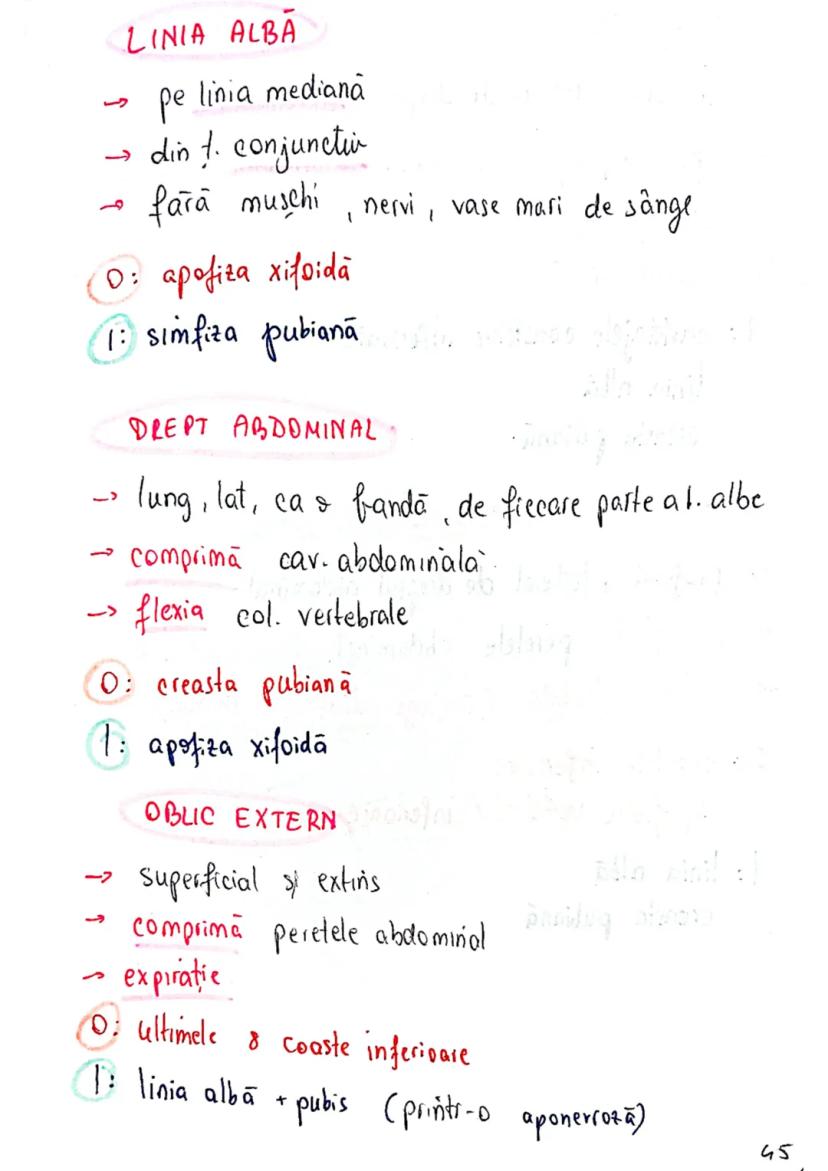 LINIA ALBĂ
→ pe linia mediană
→ din ț. conjunctiv
→ fără mușchi, nervi, vase mari de sânge
O: apofiza xifoidă
I: simfiza pubiană
DREPT ABDOMINAL
→ lung, lat, ca o bandă, de fiecare parte a l. albe
→ comprimă cav. abdominală
→ flexia col. vertebrale
O: creasta pubiană
I: apofiza xifoidă
OBLIC EXTERN
→ superficial și extins
→ comprimă peretele abdominal
→ expirație
O: ultimele 8 coaste inferioare
I: linia albă + pubis (printr-o aponerroză)
45